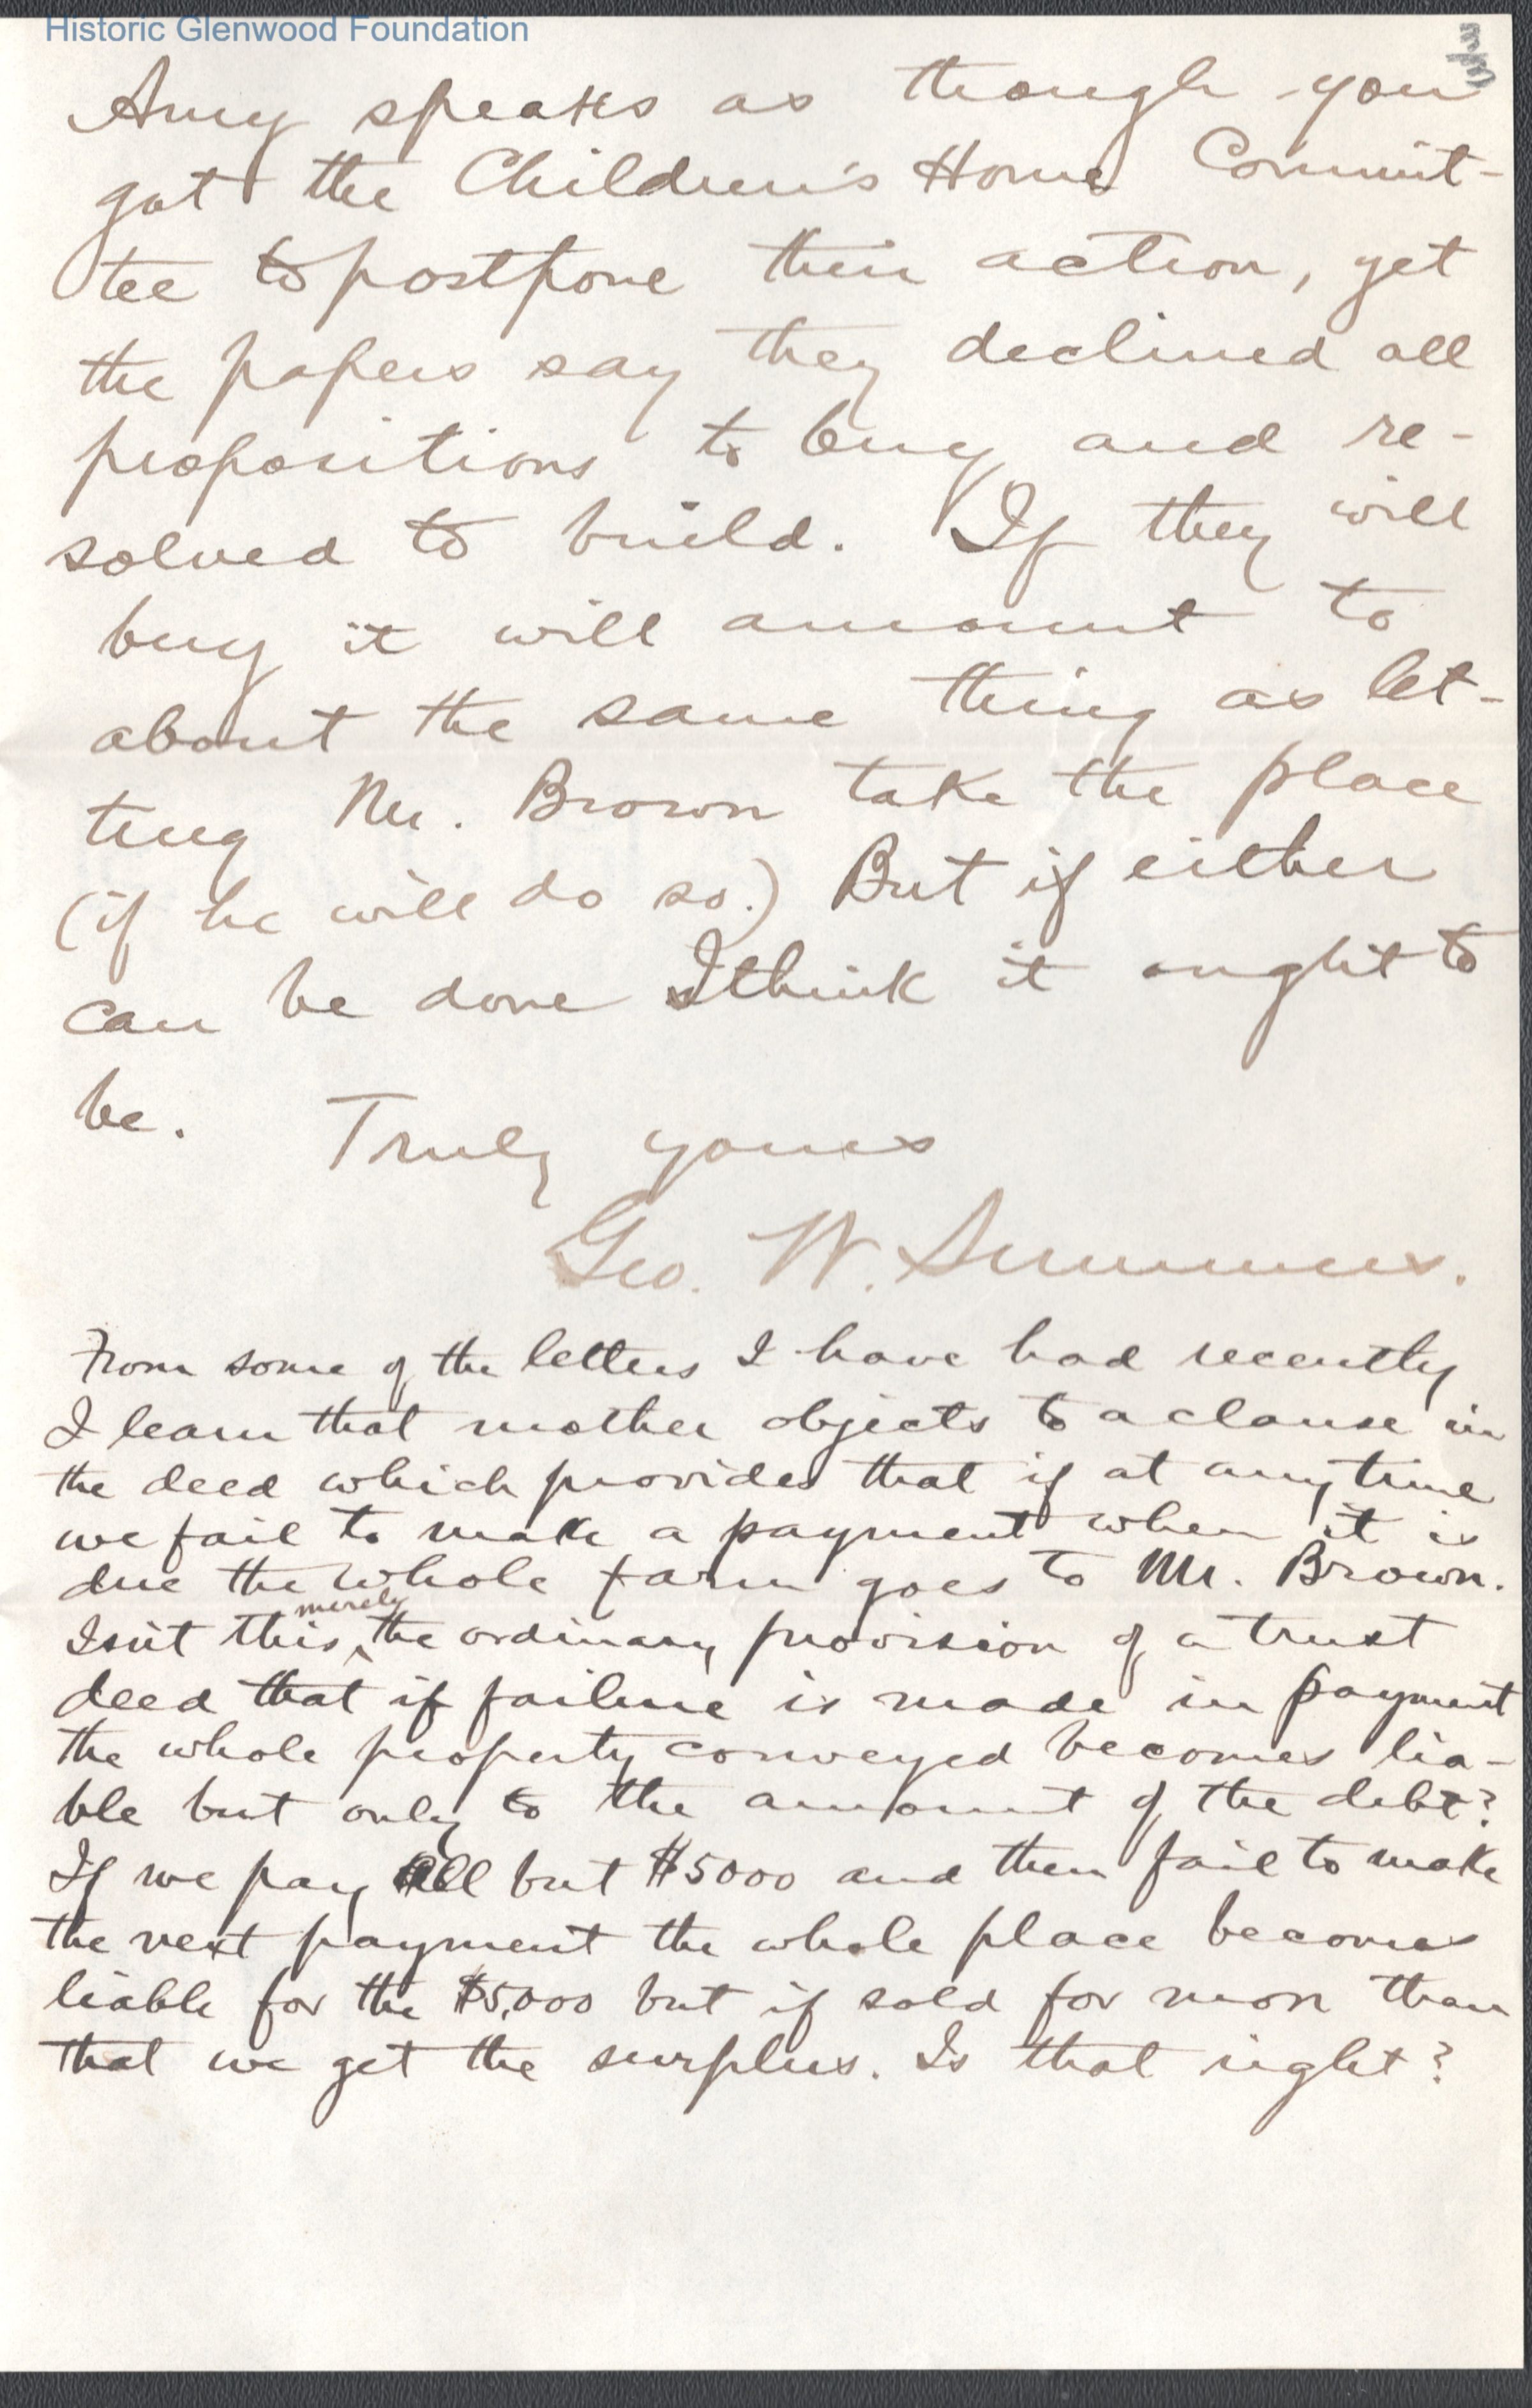 Historic Glenwood Foundation
Amy speaks as though you
got the Children's Home Commit-
tee to postpone their action, yet
the papers say they declined all
propositions to buy and re-
solved to build. If they will
buy it will amount to
about the same thing as let-
ting Mr. Brown take the place
(if he will do so.) But if either
can be done I think it ought to
be.
Truly yours
Geo. W. Summers.
From some of the letters I have had recently
I learn that mother objects to a clause in
the deed which provides that if at any time
we fail to make a payment when it is
due the whole farm goes to Mr. Brown.
Isn't this merely the ordinary provision of a trust
deed that if failure is made in payment
the whole property conveyed becomes lia-
ble but only to the amount of the debt?
If we pay all but $5000 and then fail to make
the next payment the whole place becomes
liable for the $5,000 but if sold for more than
that we get the surplus. Is that right?